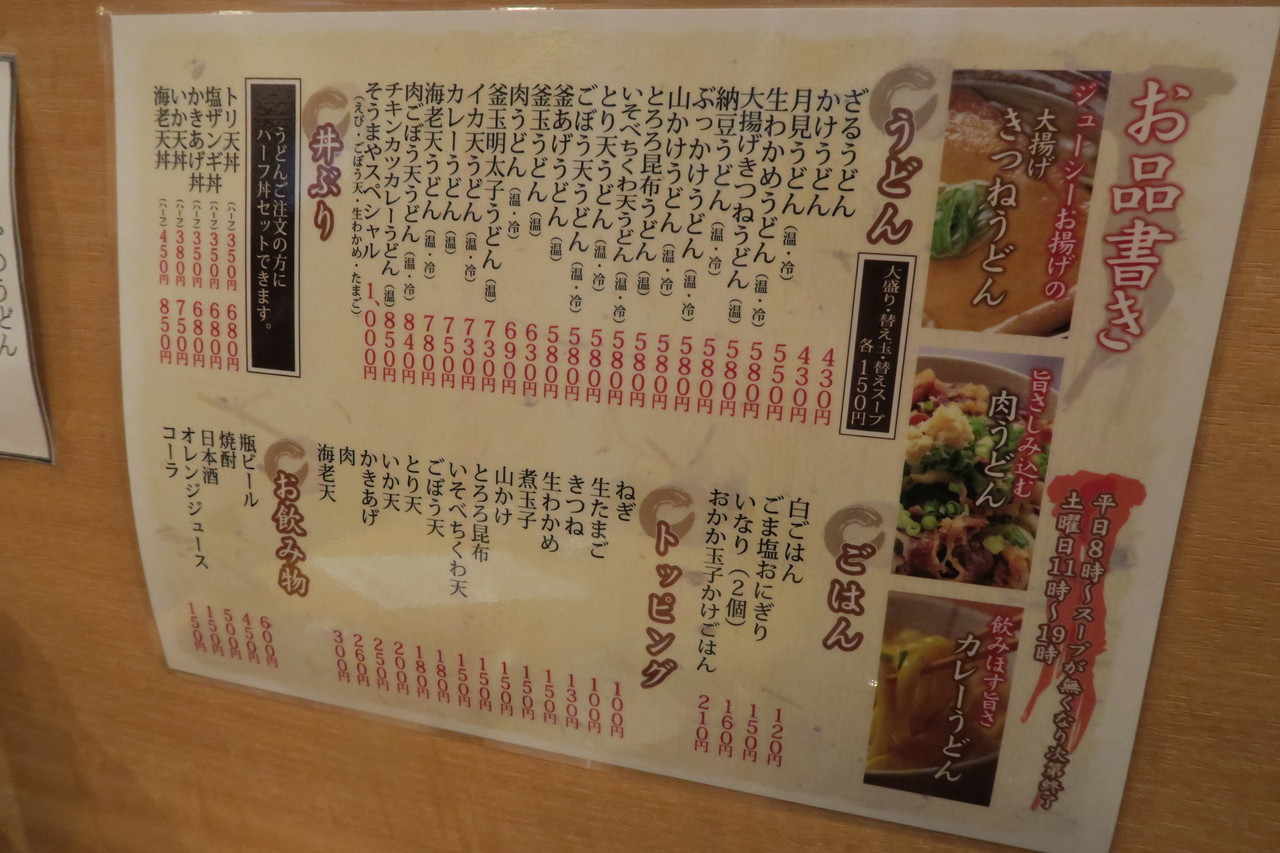 お品書き
平日8時~スープが無くなり次第終了
土曜日11時~19時
ジューシーお揚げの
大揚げ
きつねうどん
旨さしみ込む
肉うどん
飲みほす旨さ
カレーうどん
うどん
大盛り・替え玉・替えスープ
各150円
ざるうどん 430円
かけうどん 430円
月見うどん(温・冷) 550円
生わかめうどん(温・冷) 580円
大揚げきつねうどん(温) 580円
納豆うどん(温・冷) 580円
ぶっかけうどん(温・冷) 580円
山かけうどん(温・冷) 580円
とろろ昆布うどん(温) 580円
いそべちくわ天うどん(温・冷) 580円
とり天うどん(温・冷) 580円
ごぼう天うどん(温・冷) 580円
釜あげうどん(温) 580円
釜玉うどん(温) 630円
肉うどん(温・冷) 690円
釜玉明太子うどん(温) 730円
イカ天うどん(温・冷) 730円
カレーうどん(温) 750円
海老天うどん(温・冷) 780円
肉ごぼう天うどん(温・冷) 840円
チキンカツカレーうどん(温) 850円
そうまやスペシャル 1,000円
(えび・ごぼう天・生わかめ・たまご)
丼ぶり
うどんご注文の方に
ハーフ丼セットできます。
トリ天丼 (ハーフ)350円 680円
塩ザンギ丼 (ハーフ)350円 680円
かきあげ丼 (ハーフ)350円 680円
いか天丼 (ハーフ)380円 750円
海老天丼 (ハーフ)450円 850円
ごはん
白ごはん 120円
ごま塩おにぎり 150円
いなり(2個) 160円
おかか玉子かけごはん 210円
トッピング
ねぎ 100円
生たまご 100円
きつね 130円
生わかめ 150円
煮玉子 150円
山かけ 150円
とろろ昆布 150円
いそべちくわ天 150円
ごぼう天 180円
とり天 180円
いか天 200円
かきあげ 250円
肉 260円
海老天 300円
お飲み物
瓶ビール 600円
焼酎 450円
日本酒 500円
オレンジジュース 150円
コーラ 150円
うどん